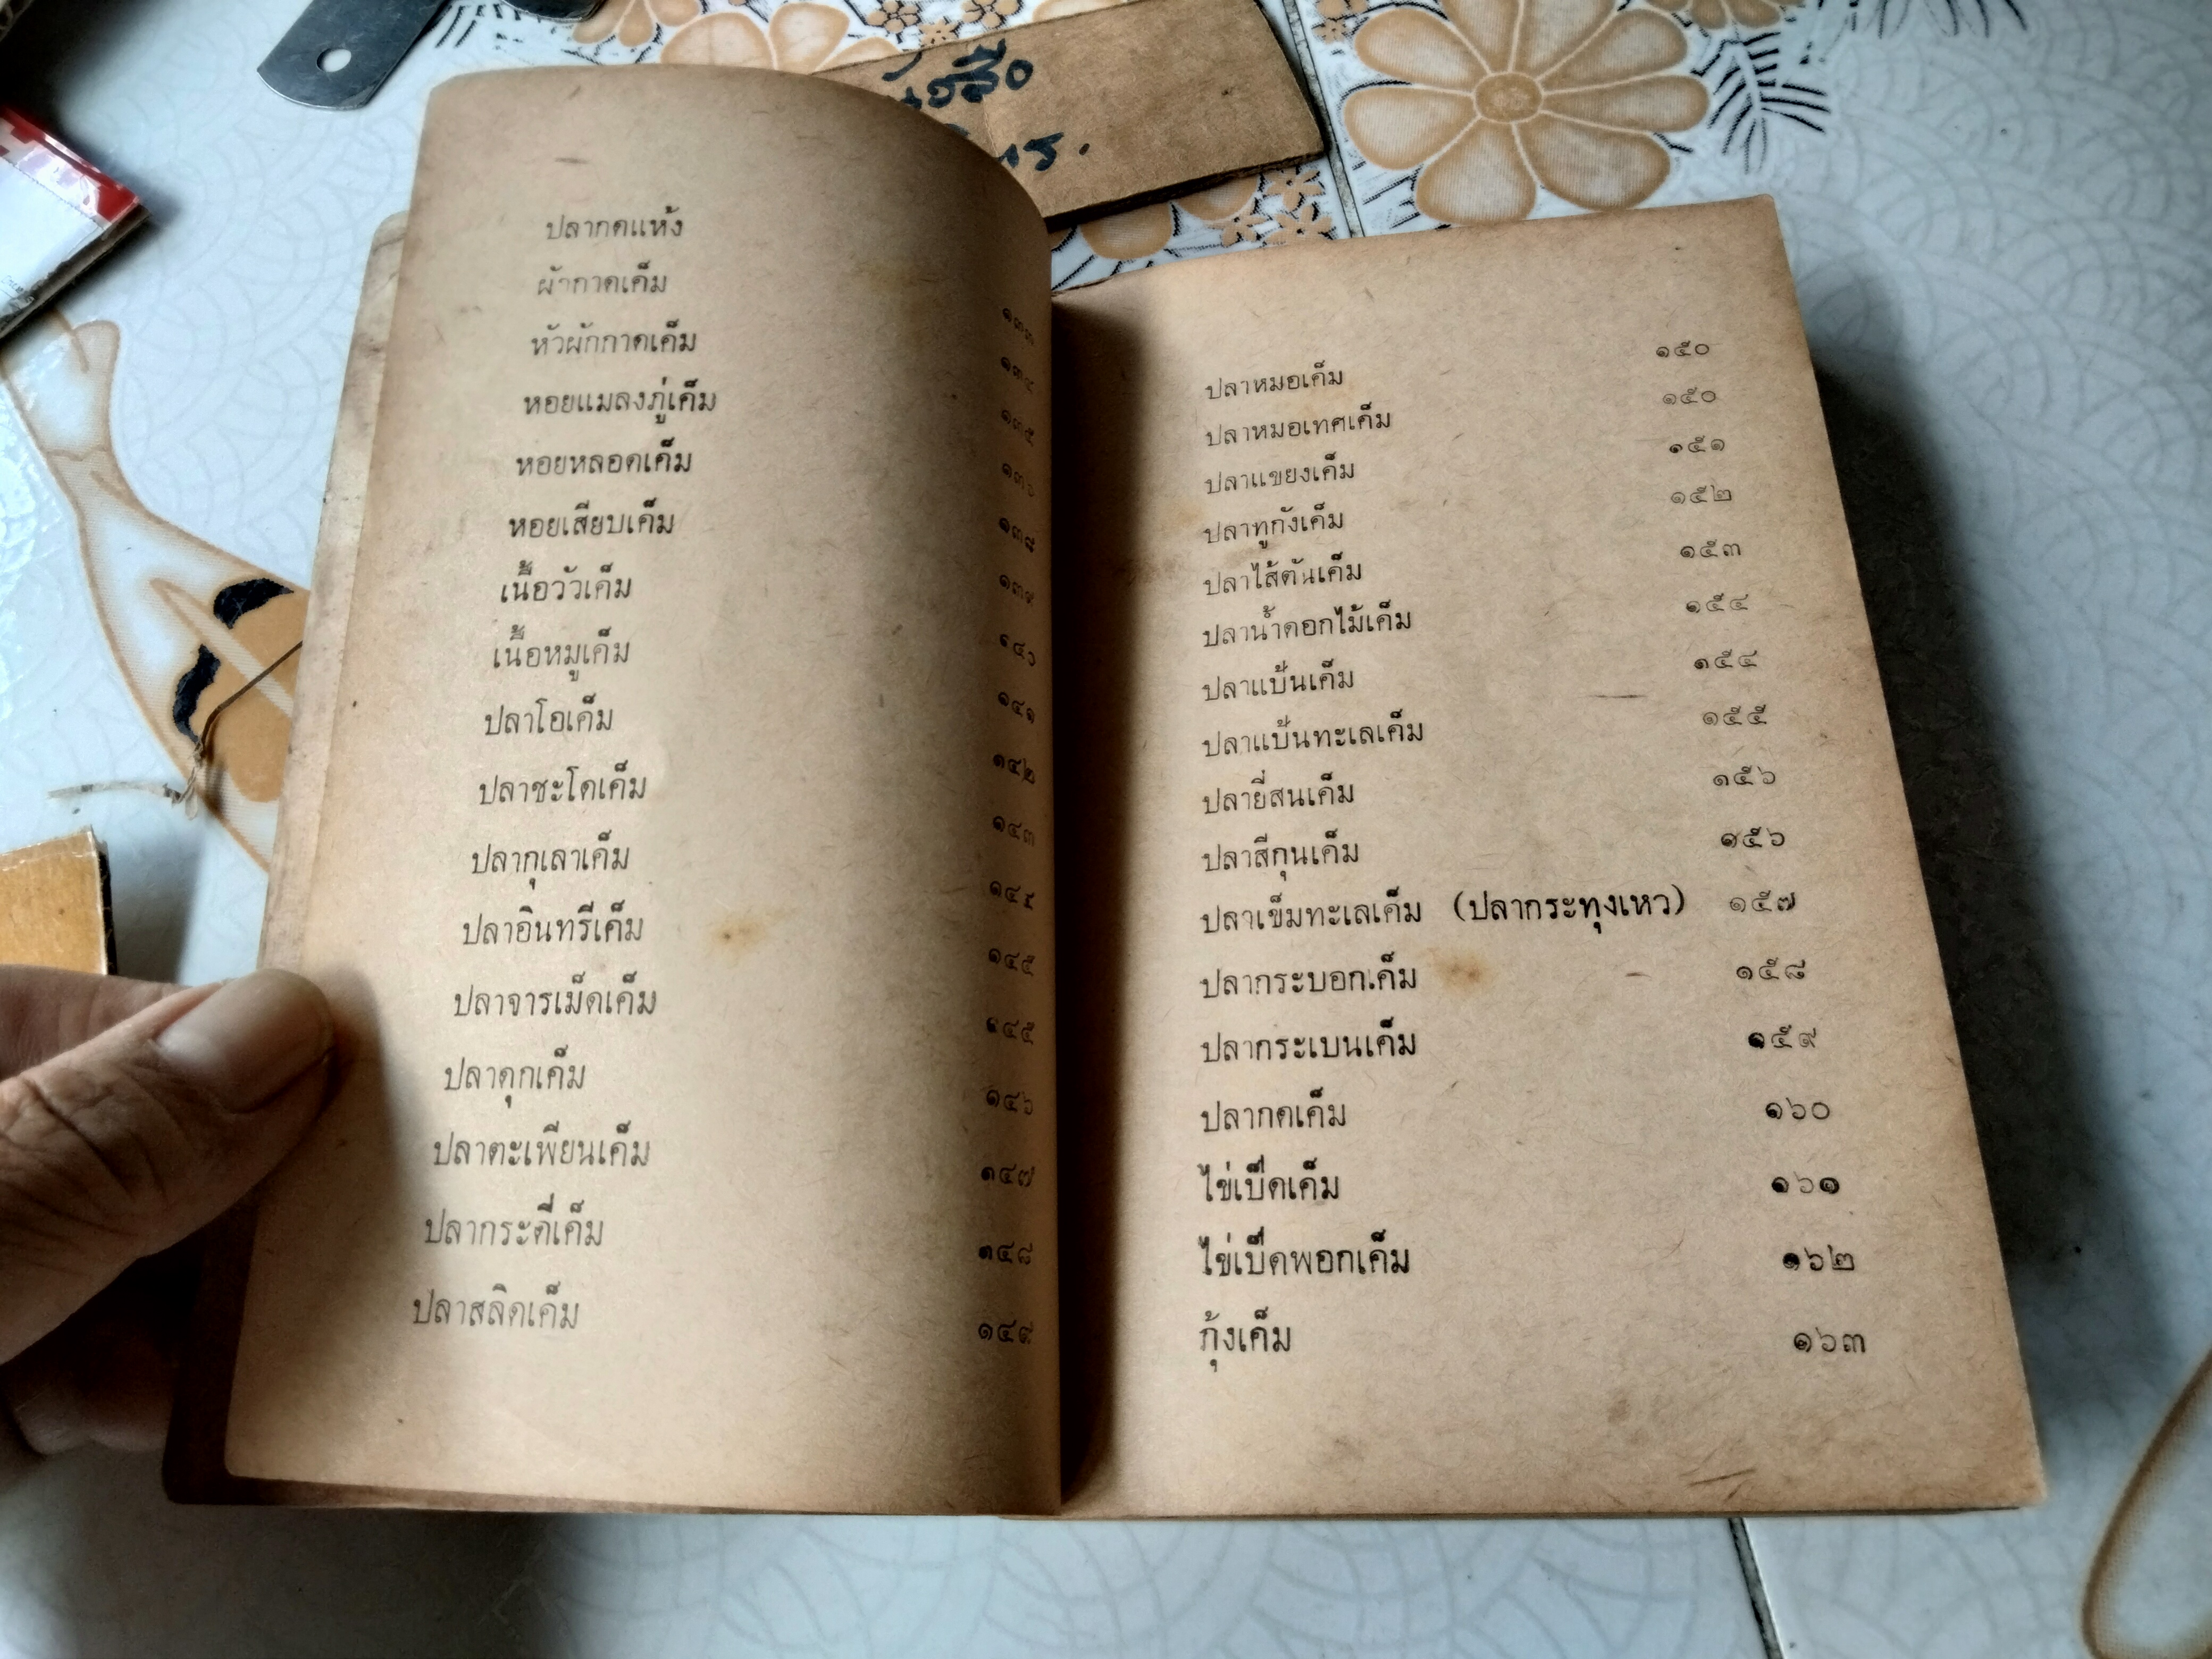 ปลากดแห้ง ๑๓๓
ผักกาดเค็ม ๑๓๔
หัวผักกาดเค็ม ๑๓๕
หอยแมลงภู่เค็ม ๑๓๖
หอยหลอดเค็ม ๑๓๘
หอยเสียบเค็ม ๑๓๙
เนื้อวัวเค็ม ๑๔๐
เนื้อหมูเค็ม ๑๔๑
ปลาโอเค็ม ๑๔๒
ปลาชะโดเค็ม ๑๔๓
ปลากุเลาเค็ม ๑๔๔
ปลาอินทรีเค็ม ๑๔๕
ปลาจารเม็ดเค็ม ๑๔๕
ปลาดุกเค็ม ๑๔๖
ปลาตะเพียนเค็ม ๑๔๗
ปลากระดี่เค็ม ๑๔๘
ปลาสลิดเค็ม ๑๔๙
ปลาหมอเค็ม ๑๕๐
ปลาหมอเทศเค็ม ๑๕๐
ปลาแขยงเค็ม ๑๕๑
ปลาทูกังเค็ม ๑๕๒
ปลาไส้ตันเค็ม ๑๕๓
ปลาน้ำดอกไม้เค็ม ๑๕๔
ปลาแป้นเค็ม ๑๕๔
ปลาแป้นทะเลเค็ม ๑๕๕
ปลายี่สนเค็ม ๑๕๖
ปลาสีกุนเค็ม ๑๕๖
ปลาเข็มทะเลเค็ม (ปลากระทุงเหว) ๑๕๗
ปลากระบอกเค็ม ๑๕๘
ปลากระเบนเค็ม ๑๕๙
ปลากดเค็ม ๑๖๐
ไข่เป็ดเค็ม ๑๖๑
ไข่เป็ดพอกเค็ม ๑๖๒
กุ้งเค็ม ๑๖๓